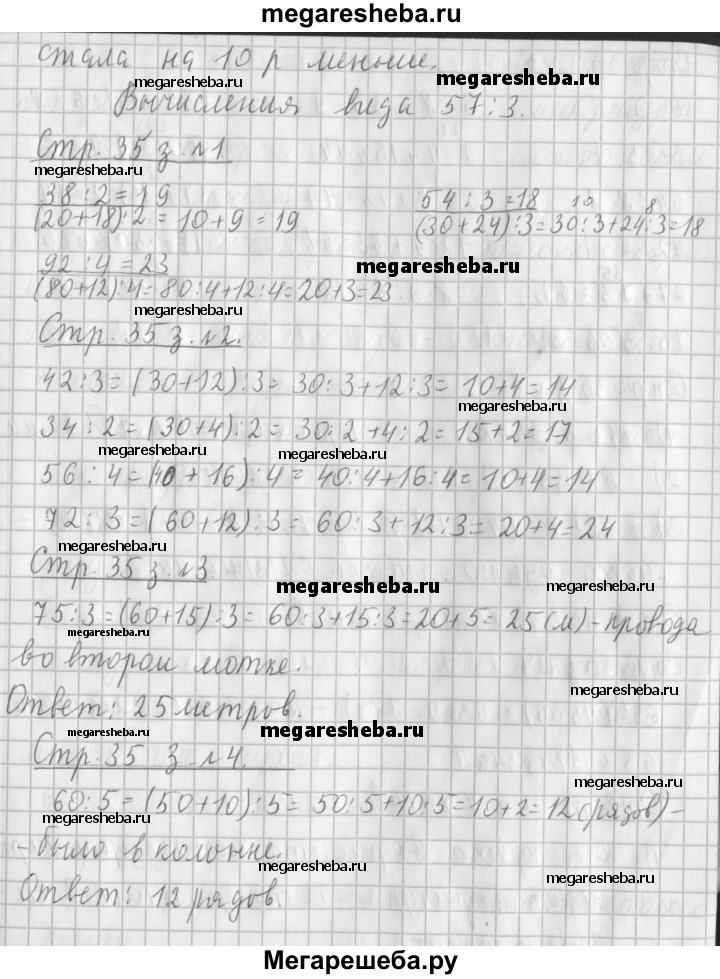 megaresheba.ru
стала на 10 р меньше.
megaresheba.ru megaresheba.ru
Вычисления вида 57:3.
Стр. 35 з. №1
megaresheba.ru megaresheba.ru
38:2=19 54:3=18 10 8
(20+18):2=10+9=19 (30+24):3=30:3+24:3=18
92:4=23 megaresheba.ru
(80+12):4=80:4+12:4=20+3=23
megaresheba.ru
Стр. 35 з. №2.
42:3=(30+12):3=30:3+12:3=10+4=14
megaresheba.ru
34:2=(30+4):2=30:2+4:2=15+2=17
megaresheba.ru megaresheba.ru
56:4=(40+16):4=40:4+16:4=10+4=14
72:3=(60+12):3=60:3+12:3=20+4=24
megaresheba.ru
Стр. 35 з. №3.
megaresheba.ru megaresheba.ru
75:3=(60+15):3=60:3+15:3=20+5=25(м)-провода
megaresheba.ru
во втором мотке.
megaresheba.ru
Ответ: 25 метров.
megaresheba.ru
Стр. 35 з. №4.
megaresheba.ru
60:5=(50+10):5=50:5+10:5=10+2=12(рядов)-
megaresheba.ru megaresheba.ru
-было в колонне.
megaresheba.ru megaresheba.ru
Ответ: 12 рядов.
Мегарешеба.ру